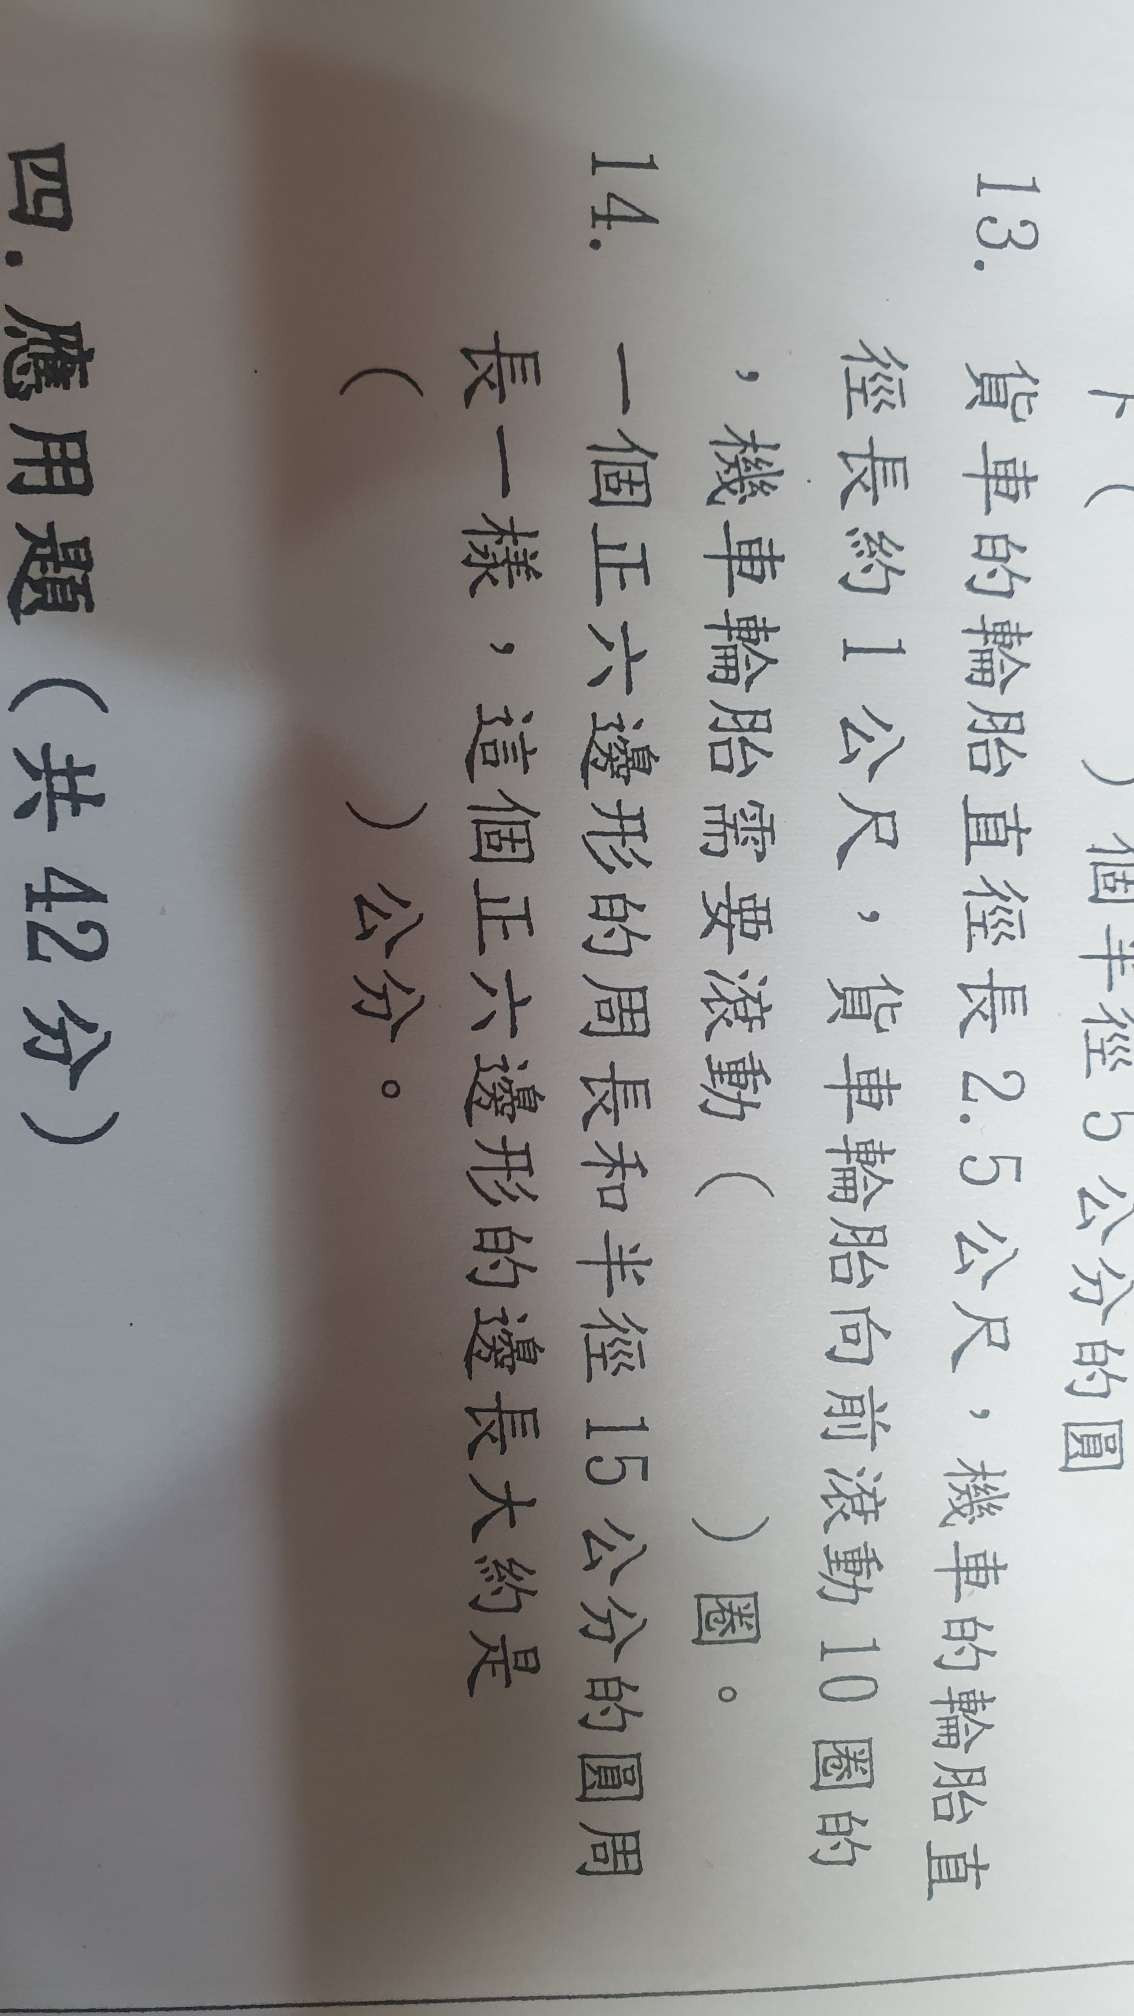 下（　　　）個半徑 5 公分的圓
13. 貨車的輪胎直徑長 2.5 公尺，機車的輪胎直
徑長約 1 公尺，貨車輪胎向前滾動 10 圈的
，機車輪胎需要滾動（　　　）圈。
14. 一個正六邊形的周長和半徑 15 公分的圓周
長一樣，這個正六邊形的邊長大約是
（　　　）公分。
四.應用題（共 42 分）